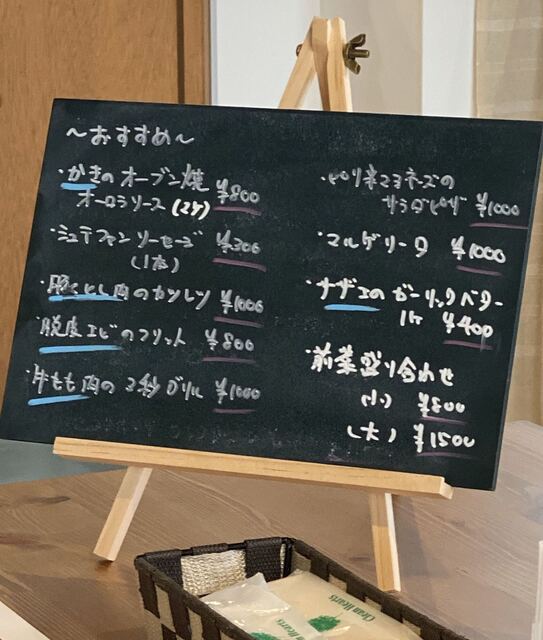 ～おすすめ～
・かきのオーブン焼
オーロラソース (2ケ) ¥800
・シュテファンソーセージ
(1本) ¥300
・豚とくし肉のカツレツ ¥1000
・脱皮エビのフリット ¥800
・牛もも肉の2秒グリル ¥1000
・ピリ辛マヨネーズの
サラダピザ ¥1000
・マルゲリータ ¥1000
・サザエのガーリックバター
1ケ ¥400
・前菜盛り合わせ
(小) ¥800
(大) ¥1500
Clean Hearts
Clean Hearts